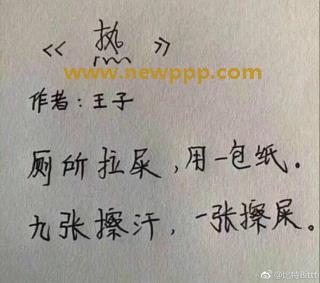 《热》
www.newppp.com
作者：王子
厕所拉屎，用一包纸。
九张擦汗，一张擦屎。
@比特Bittt